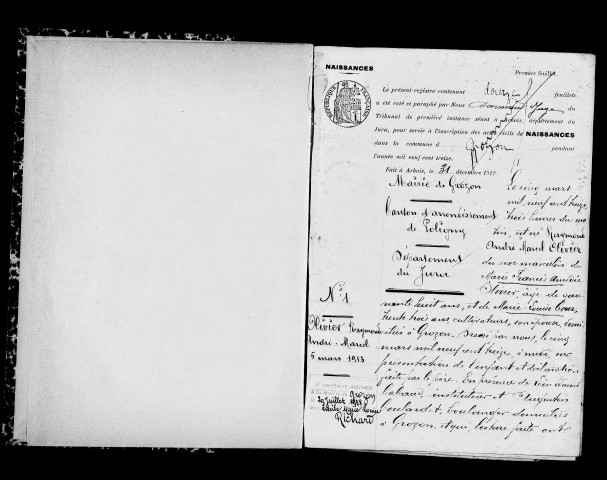 NAISSANCES
Premier feuillet.
Le présent registre contenant douze feuillets
a été coté et paraphé par Nous Juge du
Tribunal de première instance séant à Arbois, département du
Jura, pour servir à l'inscription des actes civils de NAISSANCES
dans la commune d Grozon pendant
l'année mil neuf cent treize.
Fait à Arbois, le 31 décembre 1912
RÉPUBLIQUE FRANÇAISE
Mairie de Grozon
Canton d'arrondissement
de Poligny
Département
du Jura
N° 1
Olivier Raymond
André-Marcel
5 mars 1913
Grozon
20 juillet 1938
Richard
Le cinq mars
mil neuf cent treize
trois heures du ma
tin, est né Raymond
André Marcel Olivier
du sexe masculin de
Marie Francis Amédée
Olivier, âgé de qua
rante huit ans, et de Marie Louise Cour,
trente trois ans cultivateurs, son épouse, domi
ciliés à Grozon. Dressé par nous, le cinq
mars mil neuf cent treize, à midi, sur
présentation de l'enfant et déclaration
faite par le père. En présence de Léon
instituteur et
boulanger domiciliés
à Grozon, et qui, lecture faite ont